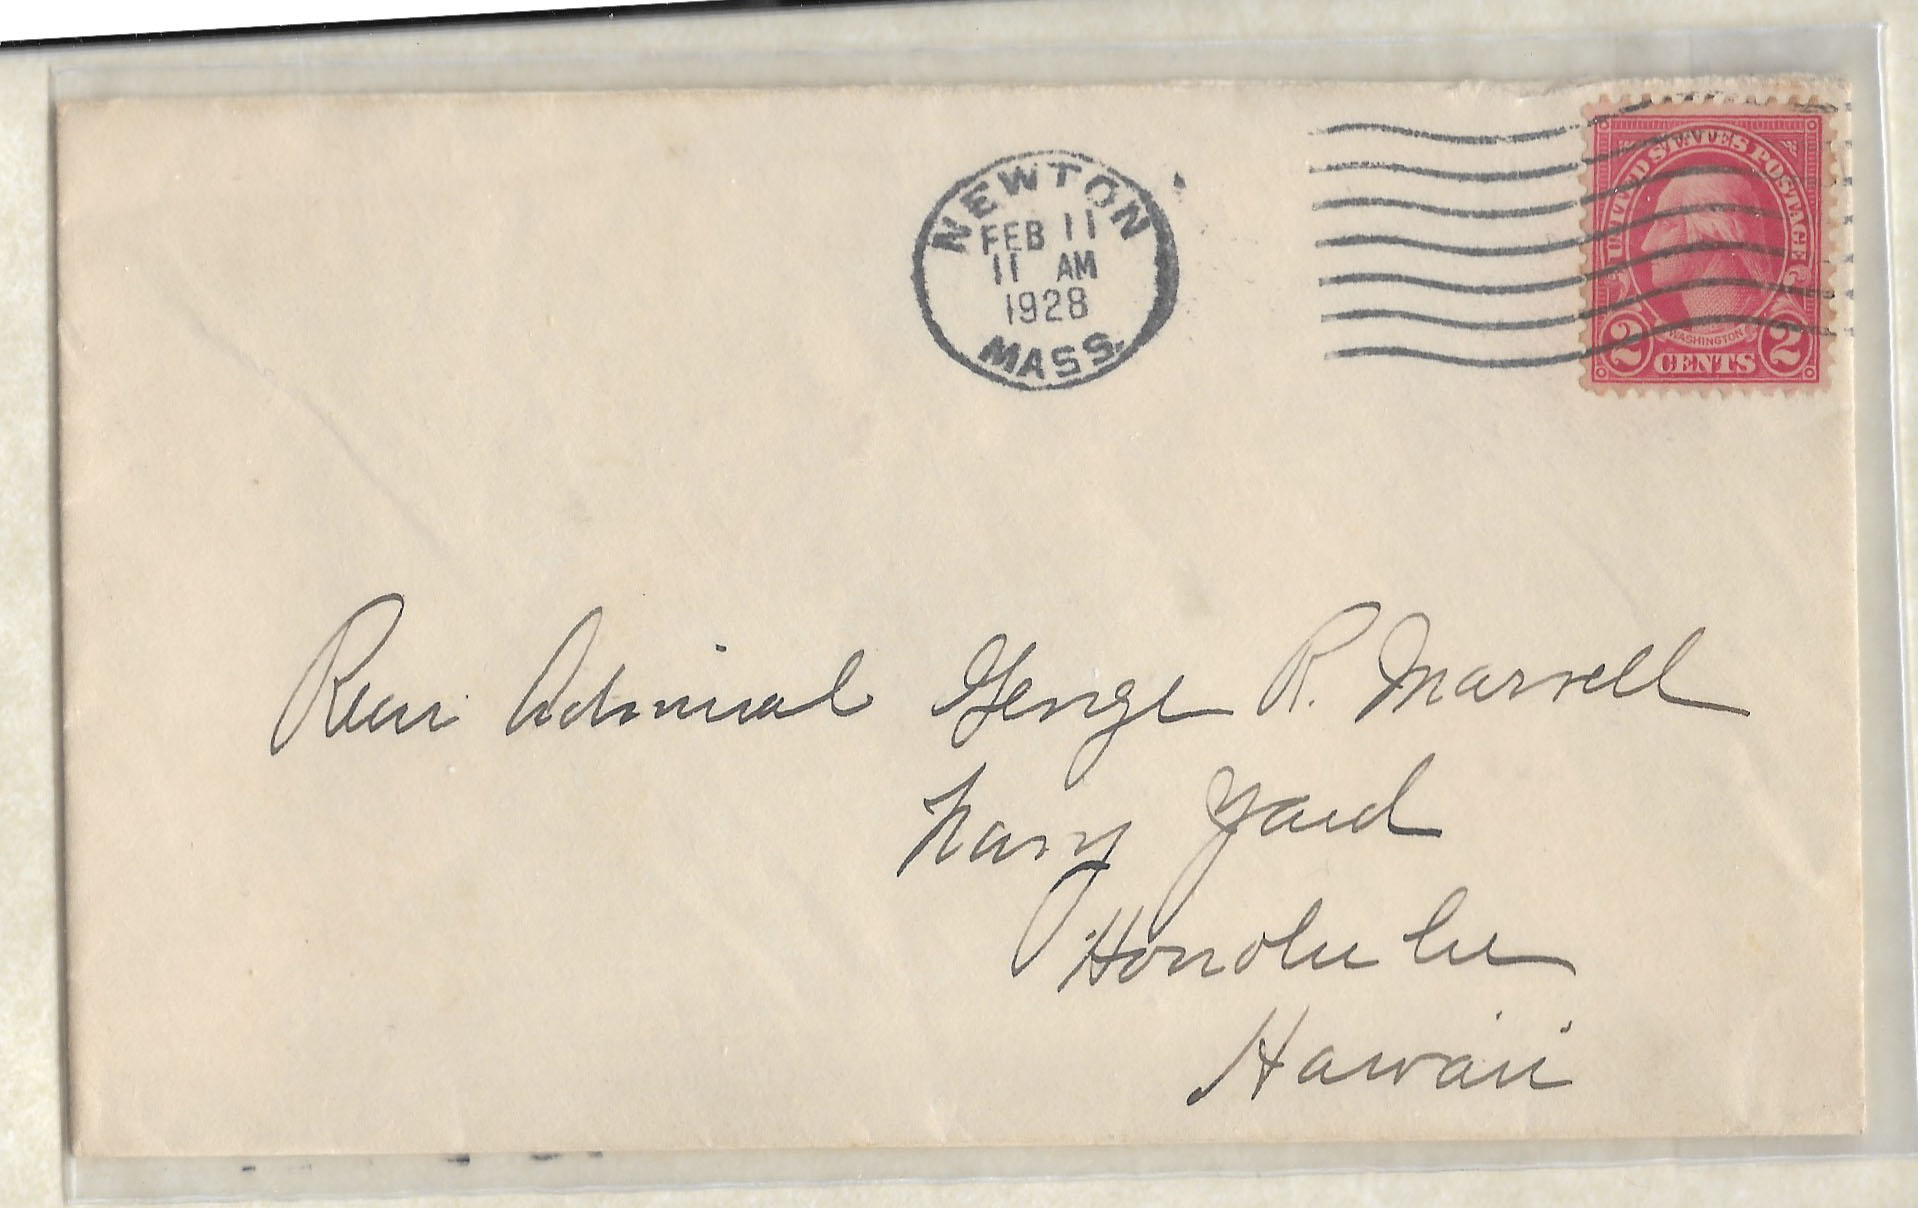 NEWTON
FEB 11
11 AM
1928
MASS.
UNITED STATES POSTAGE
WASHINGTON
2 CENTS 2
Rear Admiral George R. Marvell
Navy Yard
Honolulu
Hawaii